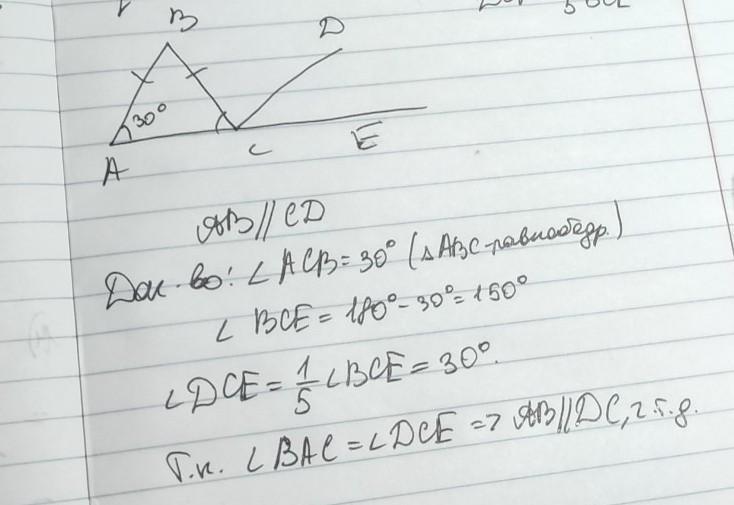 B D
30°
A C E
AB // CD
Док-во: ∠ ACB = 30° (△ABC-равнобедр.)
∠ BCE = 180° - 30° = 150°
∠DCE = 1/5 ∠BCE = 30°.
Т.к. ∠BAC = ∠DCE => AB || DC, ч.т.д.